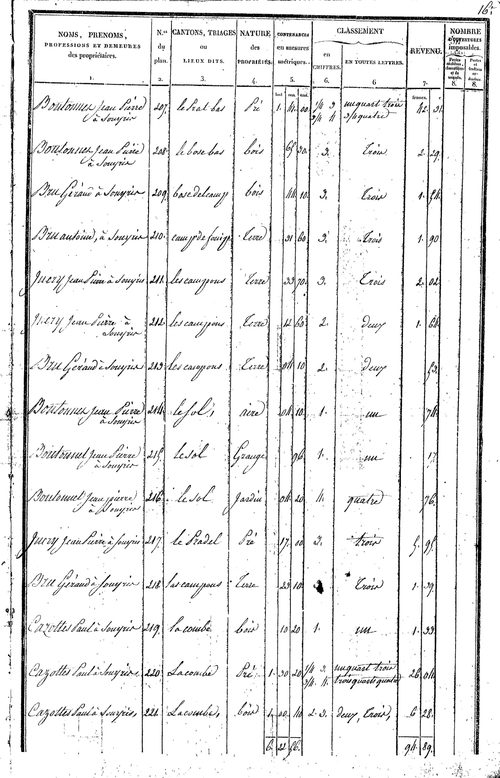 16
NOMS, PRENOMS, PROFESSIONS ET DEMEURES des propriétaires. | N.os du plan. | CANTONS, TRIAGES ou LIEUX DITS. | NATURE des PROPRIÉTÉS. | CONTENANCES en mesures métriques. | CLASSEMENT en CHIFFRES. | EN TOUTES LETTRES. | REVENU. | NOMBRE D'OUVERTURES imposables.
1. | 2. | 3. | 4. | 5. | 6. | 6 | 7. | 8. | 8.
Boutonnet Jean Pierre à Souyris | 207. | le Prat bas | Pré | 1. 41. 00 | 1/4 3 3/4 4 | un quart trois 3/4 quatre | 42. 31.
Boutonnet Jean Pierre à Souyris | 208. | le bose bas | bois | 65. 30. | 3. | Trois | 2. 29.
Bru Gérand à Souyris | 209. | bose del camp | bois | 44. 10. | 3. | Trois | 1. 54.
Bru antoine, à Souyris | 210. | camp de | Terre | 31. 60 | 3. | Trois | 1. 90
Juery Jean Pierre à Souyris | 211. | les campons | Terre | 33. 70. | 3. | Trois | 2. 02.
Juery Jean Pierre à Souyris | 212. | les campons | Terre | 12. 60 | 2. | deux | 1. 64.
Bru Gérand à Souyris | 213. | les campons | Terre | 04. 10 | 2. | deux | 53.
Boutonnet Jean Pierre à Souyris | 214. | le sol, | aire | 04. 10 | 1. | un | 74.
Boutonnet Jean Pierre à Souyris | 215. | le sol | Grange | 96 | 1. | un | 17.
Boutonnet Jean pierre à Souyris | 216. | le sol | Jardin | 04. 20 | 4. | quatre | 76.
Juery Jean Pierre à Souyris | 217. | le Pradel | Pré | 17. 00 | 3. | trois | 5. 95.
Bru Gérand à Souyris | 218. | las campons | Terre | 23. 10 | 3 | Trois | 1. 39.
Cazottes Paul à Souyris | 219. | la combe | bois | 10 20 | 1. | un | 1. 33
Cazottes Paul à Souyris | 220. | La combe | Pré | 1. 30. 20 | 1/4 3. 3/4 4. | un quart trois trois quarts quatre | 26. 04.
Cazottes Paul à Souyris, | 221. | La combe, | bois | 1. 00. 10 | 2. 3. | deux, Trois, | 6 28.
6. 21. 56. | 94. 89.